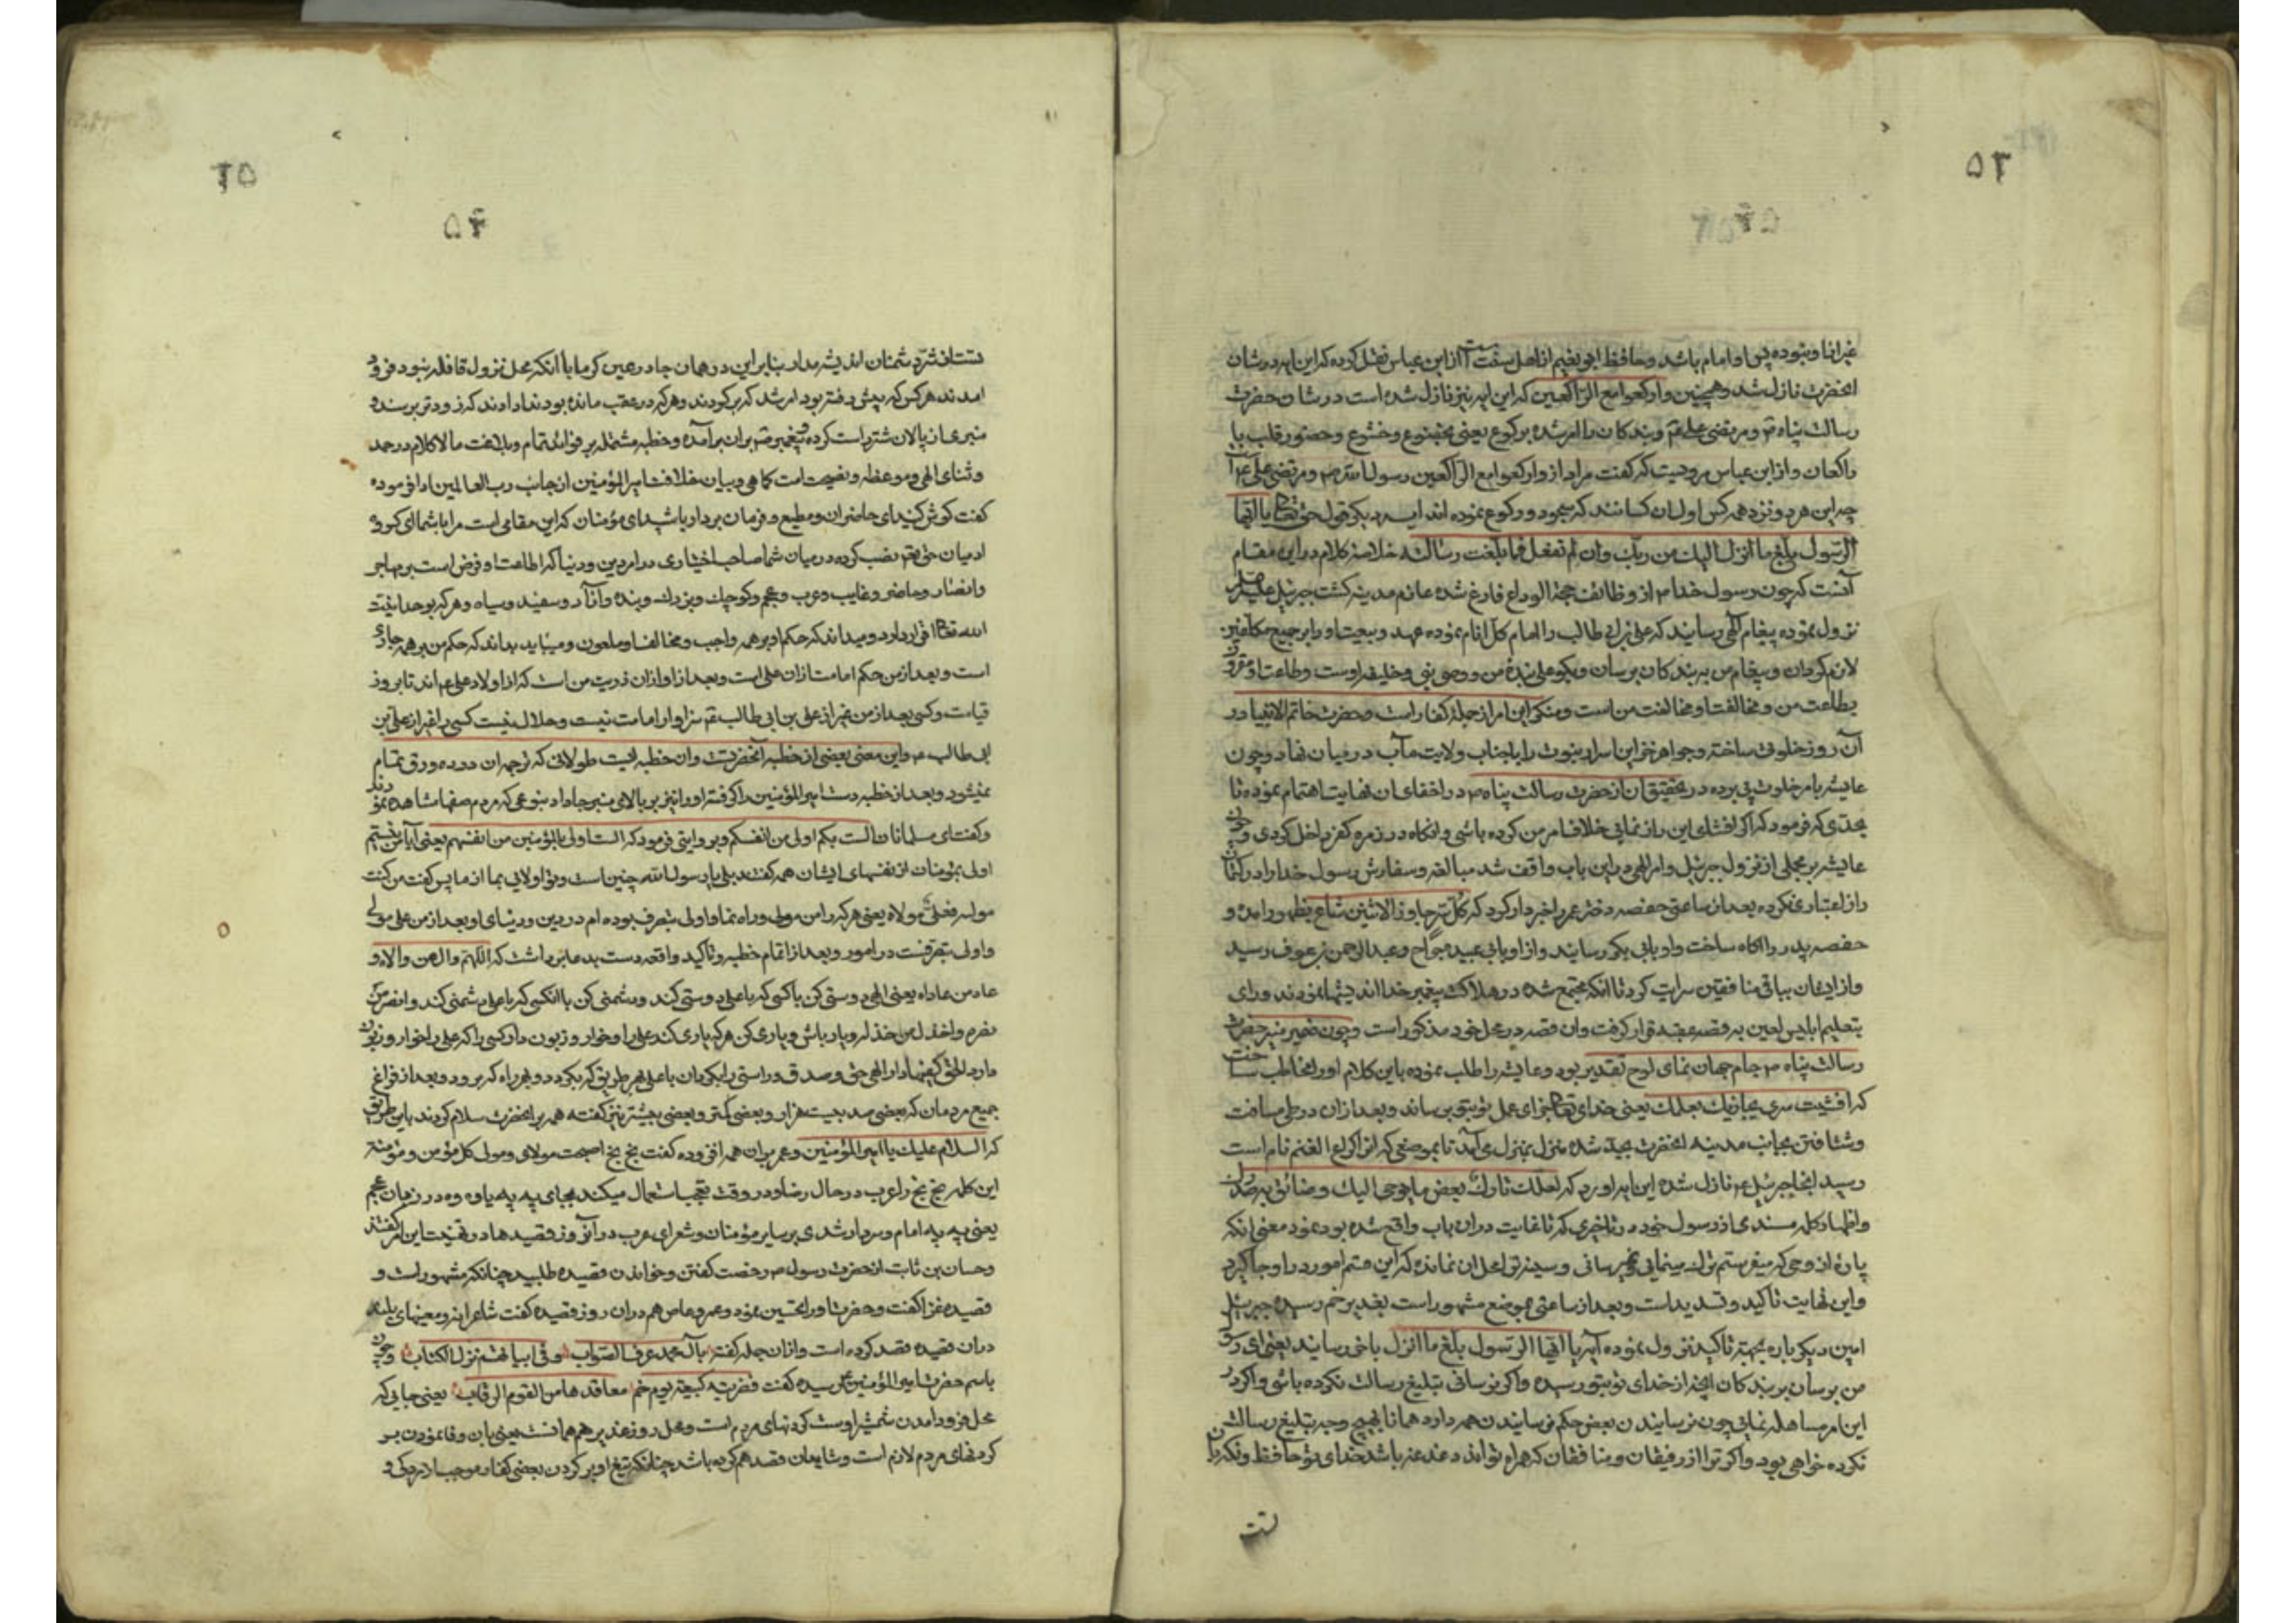 ۵۳
غیر انا و نبوده پس او امام باشد و حافظ ابو نعیم از اهل سنت است از ابن عباس نقل کرده که این ایه در شان
انحضرت نازل شد و همچنین وارکعوا مع الراکعین که این ایه نیز نازل شده است در شان حضرت
رسالت پناه ص و مرتضی علی ع و بندکان را امر شده برکوع یعنی بخضوع و خشوع و حضور قلب با
راکعان و از ابن عباس مرویست که کفت مراد از وارکعوا مع الراکعین رسول الله ص و مرتضی علی ع
چه این هر دو نزد همه کس اول ان کسانند که سجود و رکوع نموده اند ایه دیکر قول حق تعالی یا ایها
الرسول بلغ ما انزل الیک من ربک وان لم تفعل فما بلغت رسالته خلاصه کلام در این مقام
آنست که چون رسول خدا ص از وظائف حجة الوداع فارغ شده عازم مدینه کشت جبرئیل علیه السلام
نزول نموده پیغام الهی رسانید که علی بن ابی طالب را امام کل انام نموده عهد و بیعت او را بر جمیع مکلفین
لازم کردان و پیغام من به بندکان برسان و بکو علی بنده من و وصی نبی و خلیفه اوست و طاعت او مقرون
بطاعت من و مخالفت او مخالفت من است و منکر این امر از جمله کفار است و حضرت خاتم الانبیا در
آن روز خلوتی ساخته و جواهر این اسرار نبوت را با جناب ولایت مآب در میان نهاد و چون
عایشه بامر خلوت پی برده در تحقیق ان از حضرت رسالت پناه ص در اخفای ان نهایت اهتمام نموده تا
بحدی که فرمود که اکر افشای این راز نمائی خلاف امر من کرده باشی و انکاه در زمره کفر داخل کردی و چون
عایشه بر مجلی از نزول جبرئیل و امر الهی در این باب واقف شد مبالغه و سفارش رسول خدا را در کتمان
راز اعتباری نکرده بعد از ساعتی حفصه دختر عمر را خبردار کرد که کل سر جاوز الاثنین شاع بظهور امده و
حفصه پدر را اکاه ساخت و او بابی بکر رسانید و از او بابی عبیده جراح و عبد الرحمن بن عوف رسید
و از ایشان بباقی منافقین سرایت کرد تا انکه مجتمع شده در هلاکت پیغمبر خدا اندیشها نمودند و رای
بتعلیم ابلیس لعین به قصه عقبه قرار کرفت وان قصه در محل خود مذکور است و چون ضمیر منیر حضرت
رسالت پناه ص جام جهان نمای لوح تقدیر بود و عایشه را طلب نموده باین کلام او را مخاطب ساخت
که افشیت سری یجازیک بعملک یعنی خدای تعالی جزای عمل تو بتو برساند و بعد از ان در طی مسافت
و شتافتن بجانب مدینه انحضرت بجد شده منزل بمنزل می آمد تا بموضعی که انرا کراع الغنم نام است
رسید انجا جبرئیل ع نازل شده این ایه اورد که لعلک تارک بعض ما یوحی الیک و ضائق به صدرک
پاره از وحی که میفرستم ترک مینمایی و نمیرسانی و سینه تو احتمل ان ندارد که این قسم امور در او جا کیرد
و این نهایت تاکید و تسدید است و بعد از ساعتی بموضع مشهور است بغدیر خم رسید جبرئیل
امین دیکر باره بجهته تاکید نزول نموده آیه یا ایها الرسول بلغ ما انزل باخر رسانید یعنی ای رسول
من برسان به بندکان انچه از خدای تو بتو رسیده و اکر نرسانی تبلیغ رسالت نکرده باشی و اکر در
این امر مساهله نمائی چون نرسانیدن بعض حکم نرسانیدن همه دارد همانا بهیچ وجه تبلیغ رسالت من
نکرده خواهی بود و اکر ترا از رفیقان و منافقان که همراه تو اند دغدغه باشد خدای تو حافظ و نکهبان
تست
۵۴
تست از شر دشمنان اندیشه مدار بنابراین در همان جا در عین کرما با آنکه محل نزول قافله نبود فرود
امدند هر کس که پیش رفته بود امر شد که برکردند و هر که در عقب مانده بود ندا دادند که زودتر برسند و
منبری از پالان شتر راست کرده و پیغمبر ص بران برآمده و خطبه مشتمل بر فوائد تمام و بلاغت مالا کلام در حمد
و ثنای الهی و موعظه و نصیحت امت کماهی و بیان خلافت امیر المؤمنین از جانب رب العالمین ادا فرموده
کفت کوش کنید ای حاضران و مطیع و فرمان بردار باشید ای مؤمنان که این مقامی است مرا با شما ای کروه
ادمیان حق تعم نصب کرده در میان شما صاحب اختیاری در امر دین و دنیا که اطاعت او فرض است بر مهاجر
وانصار و حاضر و غایب و عرب و عجم و کوچک و بزرک و بنده و آزاد و سفید و سیاه و هر که بوحدانیت
الله تعالی اقرار دارد و میداند که حکم او بر همه واجب و مخالف او ملعون و میباید بداند که حکم من بر همه جاری
است و بعد از من حکم امامت از ان علی است و بعد از او از ان ذریت من است که از اولاد علی ع اند تا بروز
قیامت و کسی بعد از من غیر از علی بن ابی طالب ع سزاوار امامت نیست و حلال نیست کسی را غیر از علی بن
ابی طالب ع و این معنی بعضی از خطبه آنحضرتست وان خطبه ایست طولانی که ترجمه ان در ده ورق تمام
نمیشود و بعد از خطبه دست امیر المؤمنین را کرفته او را نیز بر بالای منبر جا داد بنوعی که مردم صفها مشاهده نمودند
و کفت ای مسلمانان الست بکم اولی من انفسکم و بروایتی فرمود که الست اولی بالمؤمنین من انفسهم یعنی آیا من نیستم
اولی بمؤمنان از نفسهای ایشان همه کفتند بلی یا رسول الله چنین است و تو اولایی بما از ما پس کفت من کنت
مولاه فعلی مولاه یعنی هر که را من مولی و راه نما و اولی بتصرف بوده ام در دین و دنیای او بعد از من علی مولی
و اولی بتصرفست در امور و بعد از اتمام خطبه و تاکید واقعه دست بدعا برداشت که اللهم وال من والاه و
عاد من عاداه یعنی الهی دوستی کن با کسی که با علی دوستی کند و دشمنی کن با انکسی که با علی دشمنی کند وانصر من
نصره واخذل من خذله و یار باش و یاری کن هر که یاری کند علی را و خوار و زبون دار کسی را که علی را خوار و زبون
جمیع مردمان که بعضی صد بیست هزار و بعضی کمتر و بعضی بیشتر نیز کفته همه بر انحضرت سلام کردند باین طریق
که السلام علیک یا امیر المؤمنین و عمر بران همه افزوده کفت بخ بخ اصبحت مولای و مولی کل مؤمن و مؤمنة
این کلمه بخ بخ را عرب در حال رضا و در وقت تعجب استعمال میکند بجای په په یا وه وه در زبان عجم
یعنی په په امام و سردار شدی بر سایر مؤمنان و شعرای عرب در آنروز قصیدها در تهنیت این امر کفتند
و حسان بن ثابت از حضرت رسول ص رخصت کفتن و خواندن قصیده طلبید چنانکه مشهور است و
قصیده غرا کفت و حضرت او را تحسین نمود و عمرو عاص هم دران روز قصیده کفت شاعرانه و معنیهای بلند
دران قصیده قصد کرده است و ازان جمله کفته بآل محمد عرف الصواب وفی ابیاتهم نزل الکتاب و چون
باسم حضرت امیر المؤمنین ع رسیده کفت و ضربته کبیعته یوم خم معاقدها من القوم الرقاب یعنی جایی که
محل فرود امدن شمشیر اوست کردنهای مردم است و محل روز غدیر هم همانست یعنی بان وفا نمودن بر
کردنهای مردم لازم است و شاید ان قصد هم کرده باشد چنانکه تیغ او بر کردن بعضی کفار موجب